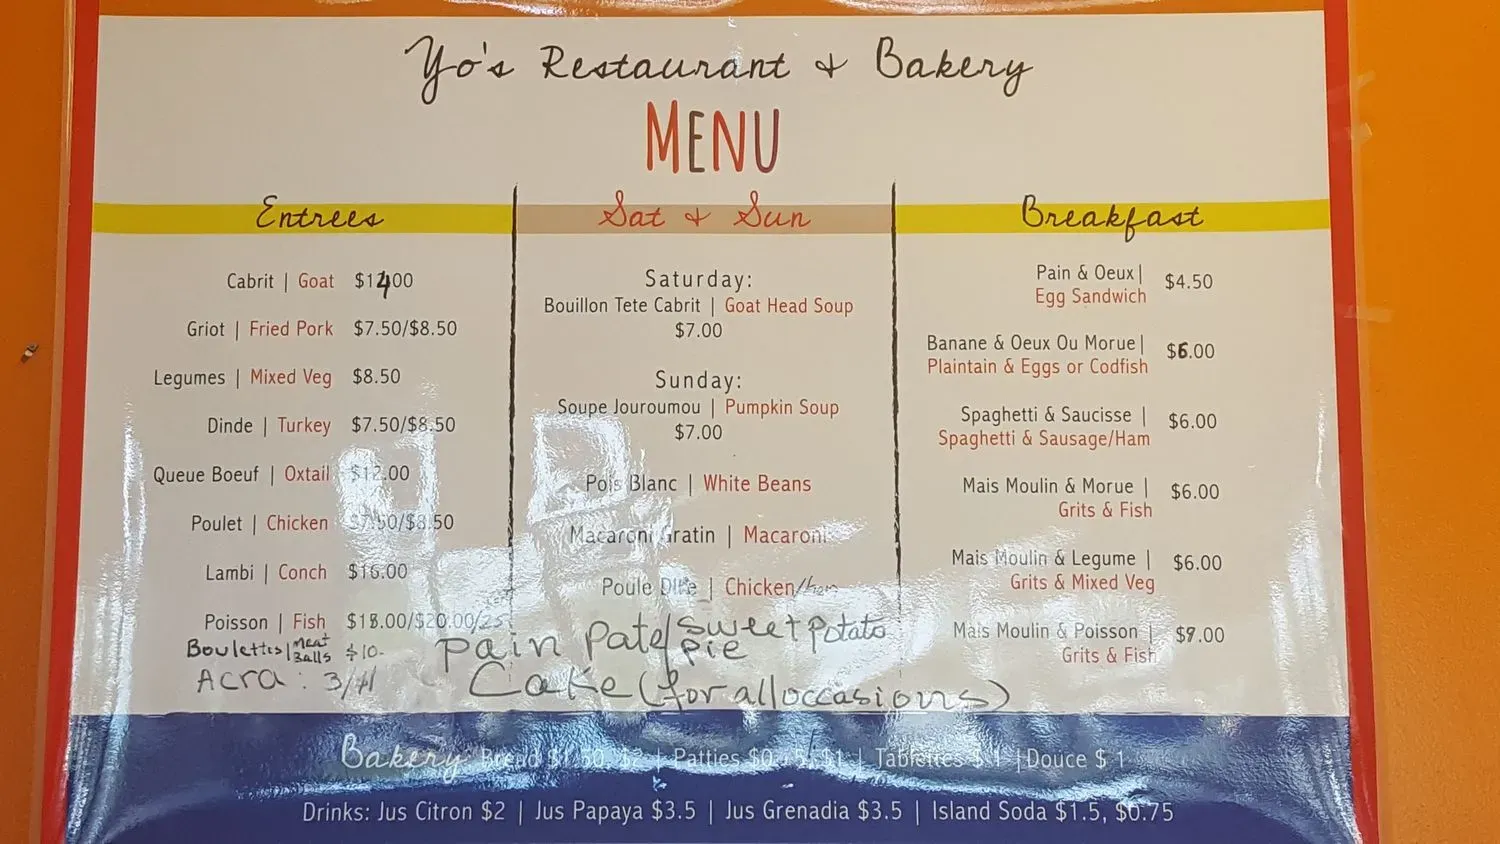 Yo's Restaurant & Bakery
MENU
Entrees
Cabrit | Goat $14.00
Griot | Fried Pork $7.50/$8.50
Legumes | Mixed Veg $8.50
Dinde | Turkey $7.50/$8.50
Queue Boeuf | Oxtail $12.00
Poulet | Chicken $7.50/$8.50
Lambi | Conch $16.00
Poisson | Fish $18.00/$20.00/25
Boulettes | Meat Balls $10-
Acra: 3/$1
Sat & Sun
Saturday:
Bouillon Tete Cabrit | Goat Head Soup
$7.00
Sunday:
Soupe Jouroumou | Pumpkin Soup
$7.00
Pois Blanc | White Beans
Macaroni Gratin | Macaroni
Poule | Chicken/hen
Pain Pate/Sweet Potato Pie
Cake (for all occasions)
Breakfast
Pain & Oeux|
Egg Sandwich $4.50
Banane & Oeux Ou Morue|
Plaintain & Eggs or Codfish $6.00
Spaghetti & Saucisse |
Spaghetti & Sausage/Ham $6.00
Mais Moulin & Morue |
Grits & Fish $6.00
Mais Moulin & Legume |
Grits & Mixed Veg $6.00
Mais Moulin & Poisson |
Grits & Fish $9.00
Bakery: Bread $1.50, $2 | Patties $1 | Tablettes $1 | Douce $ 1
Drinks: Jus Citron $2 | Jus Papaya $3.5 | Jus Grenadia $3.5 | Island Soda $1.5, $0.75